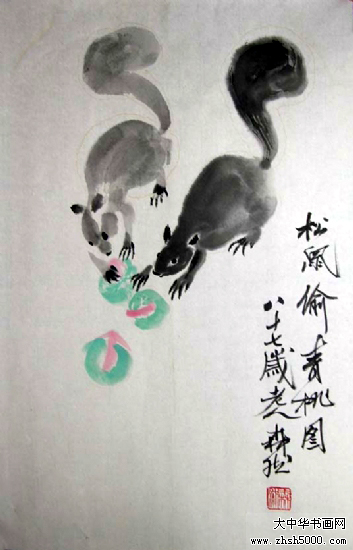 松鼠偷青桃图
八十七歲老人
大中华书画网
www.zhsh5000.com